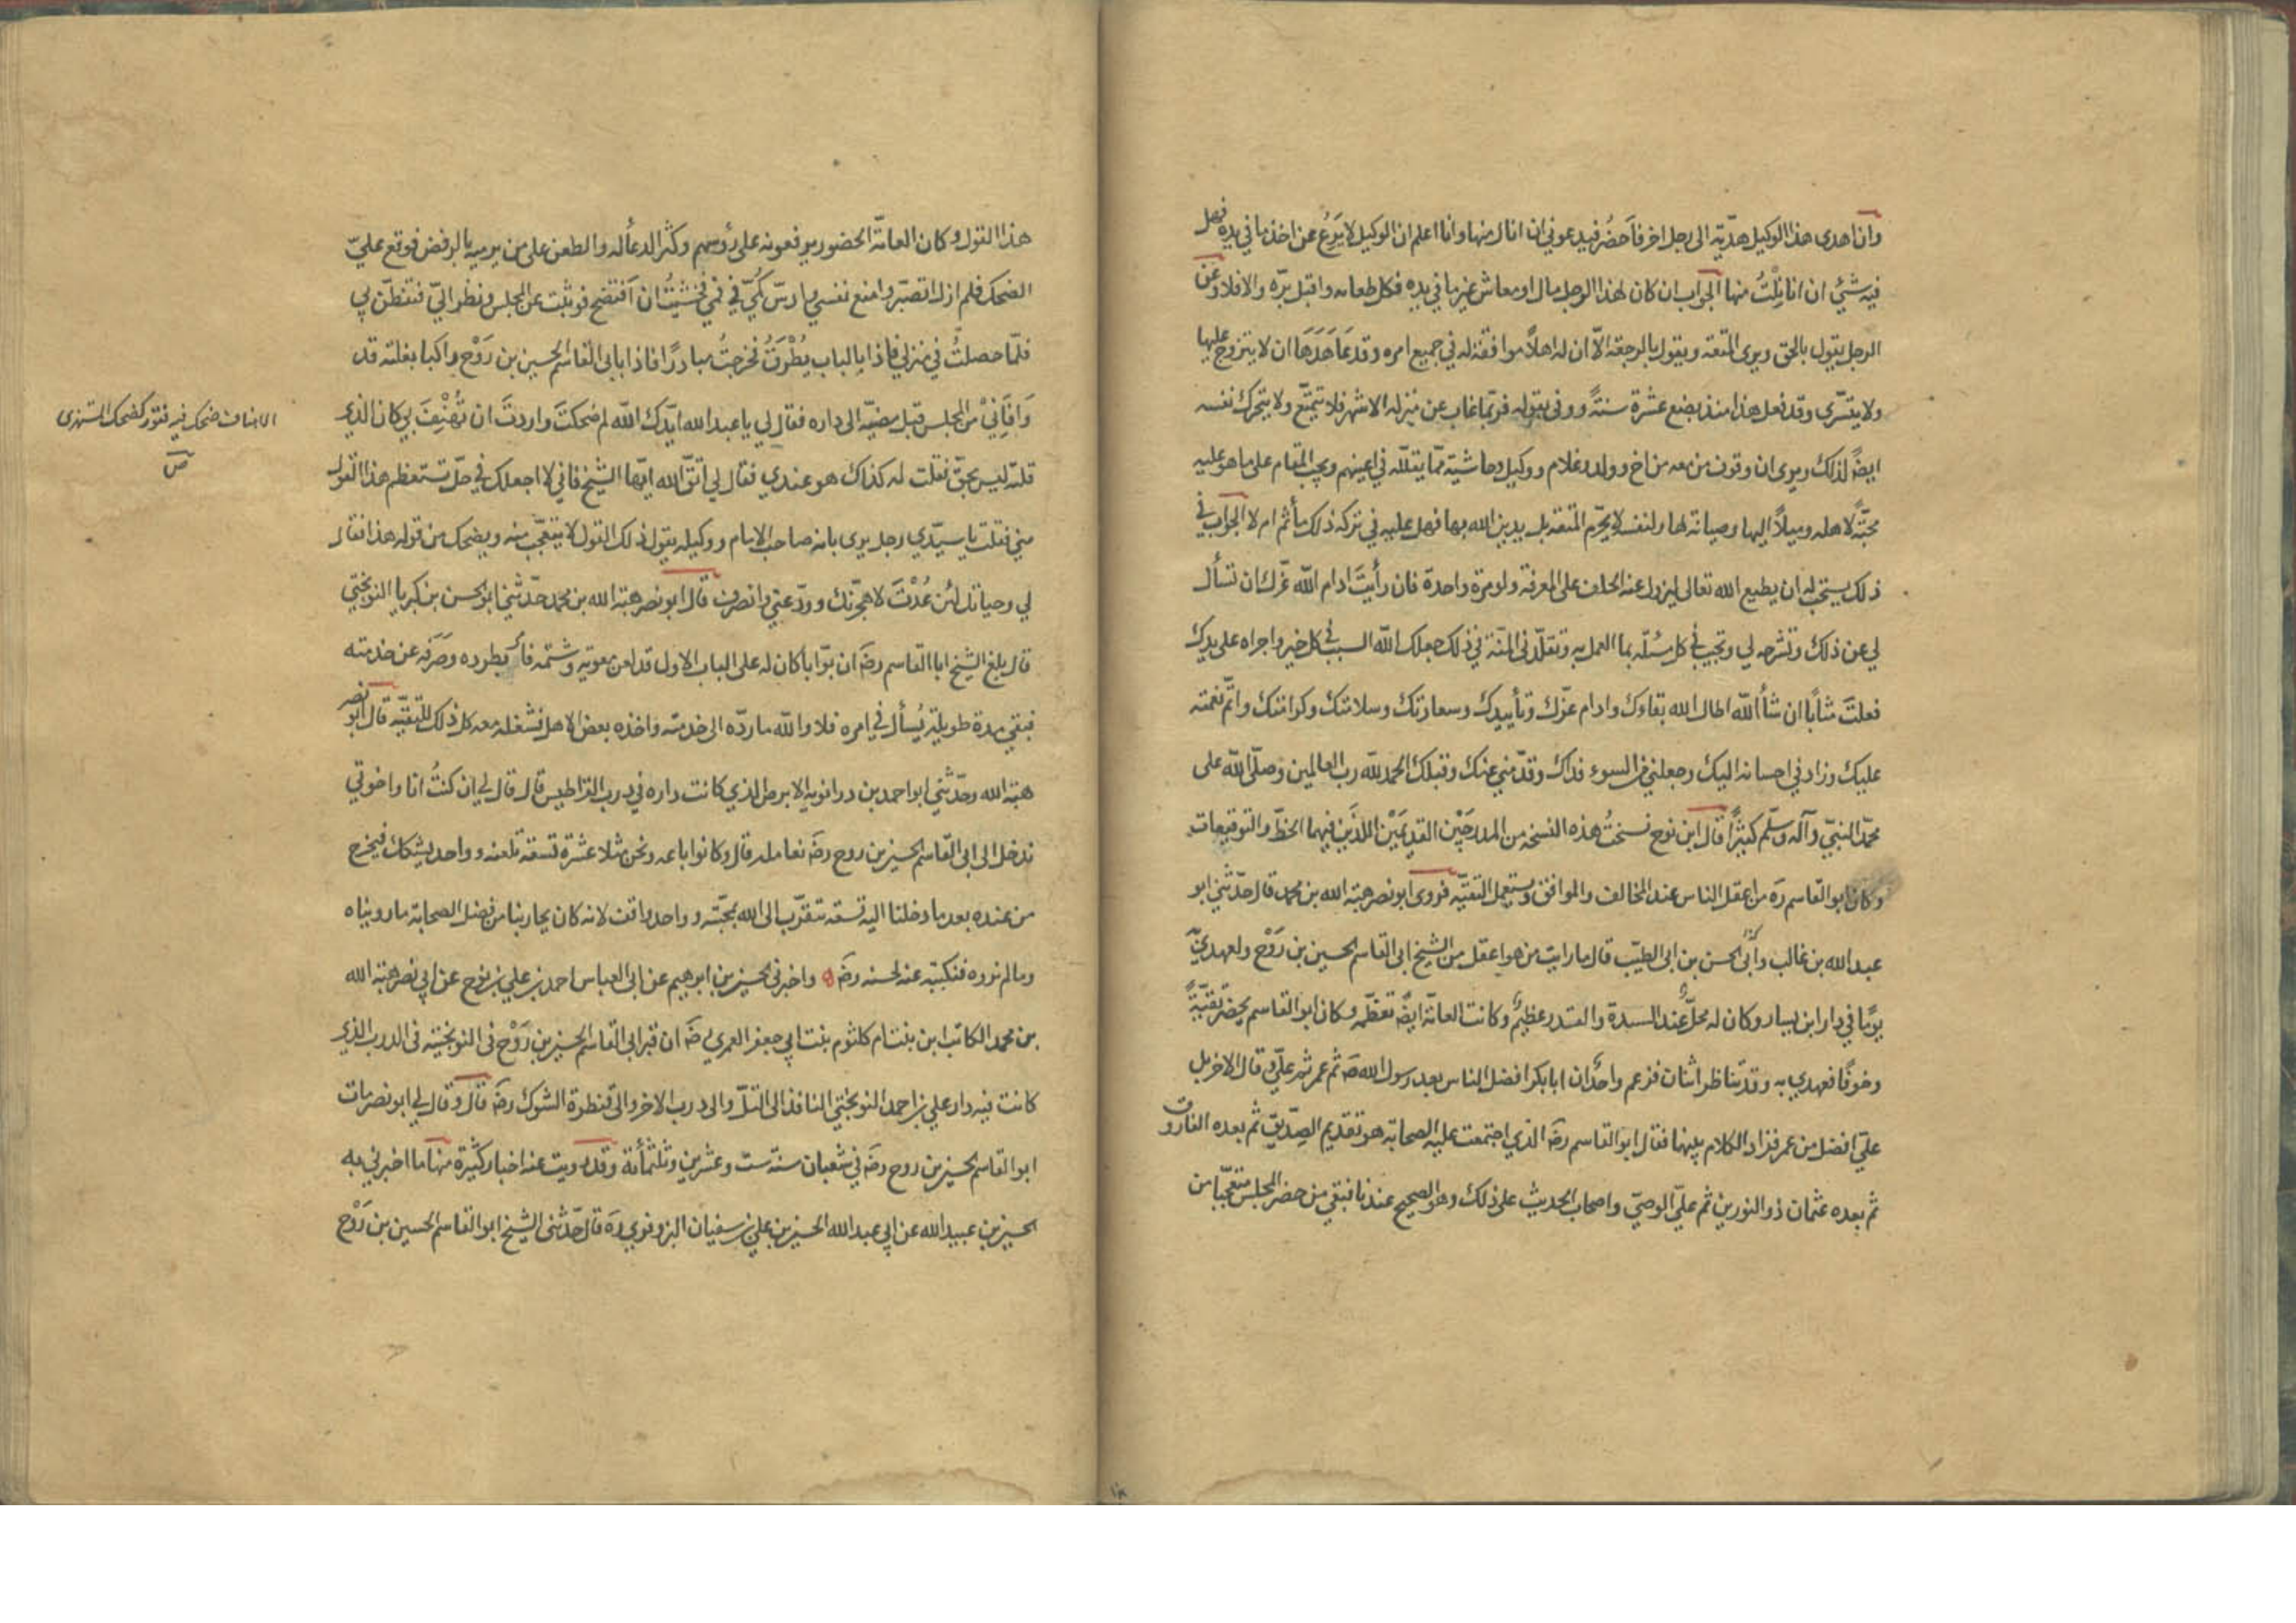 وان اهدى هذا الوكيل هديّة الى رجل اخر فاَحضُر فيدعوني ان انال منها وانا اعلم ان الوكيل لا يَرَعُ عن اخذ ما في يده فهل
فيه شيئ ان انا نِلْتُ منها الجواب ان كان لهذا الرجل مال او معاش غير ما في يده فكل طعامه واقبل برّه والا فلا وعن
الرجل يقول بالحق ويرى المتعة ويقول بالرجعة الاّ ان له اهلاً موافقة له في جميع امره وقد عَاهَدَهَا ان لا يتزوج عليها
ولا يتسّرى وقد فعل هذا منذ بضع عشرة سنةً ووفى بقوله فربّما غاب عن منزله الاشهر فلا يتمتّع ولا يتحرك نفسه
ايضًا لذلك ويرى ان وقوف من معه من اخ وولد وغلام ووكيل وحاشية ممّا يقلّله في اعينهم ويحب المقام على ما هو عليه
محبّةً لاهله وميلاً اليها وصيانة لها ولنفسه لا يحرّم المتعة بل يدين الله بها فهل عليه في تركه ذلك مأثم ام لا الجواب في
ذلك يستحب له ان يطيع الله تعالى ليزول عنه الحلف على المعرفة ولو مرة واحدة فان رأيتَ ادام الله عزّك ان تسأل
لي عن ذلك وتشرحه لي وتجيب في كل مسئلة بما العمل به وتقلّدني المنّة في ذلك جعلك الله السبب في كل خير واجراه على يدك
فعلتَ مثابًا ان شأ الله اطال الله بقاءك وادام عزّك وتأييدك وسعادتك وسلامتك وكرامتك واتمّ نعمته
عليك وزاد في احسانه اليك وجعلني من السوء فداك وقدّمني عنك وقبلك الحمد لله رب العالمين وصلّى الله على
محمّد النبيّ وآله وسلّم كثيرًا قال ابن نوح نسختُ هذه النسخه من المدرجَيْن القديمَيْن اللذَين فيهما الخطّ والتوقيعات
وكان ابو القاسم ره من اعقل الناس عند المخالف والموافق ويستعمل التقيّه فروى ابو نصر هبة الله بن محمد قال حدّثني ابو
عبد الله بن غالب وأبى الحسن بن ابى الطيّب قال ما رايت من هو اعقل من الشيخ ابى القاسم الحسين بن رَوْح ولعهدي به
يومًا في دار ابن يسار وكان له محلٌّ عند السيدة والمقتدر عظيمٌ وكانت العامّة ايضًا تعظّمه وكان ابو القاسم يحضر تقيّةً
وخوفًا فعهدي به وقد تناظر اثنان فزعم واحدٌ ان ابا بكر افضل الناس بعد رسول الله صَ ثم عمر ثم عليّ وقال الاخر بل
عليّ افضل من عمر فزاد الكلام بينهما فقال ابو القاسم رضَ الذي اجتمعت عليه الصحابة هو تقديم الصِدّيق ثم بعده الفاروق
ثم بعده عثمان ذو النورين ثم عليّ الوصيّ واصحاب الحديث على ذلك وهو الصحيح عندنا فبقي من حضر المجلس متعجّبًا من
هذا القول وكان العامّة الحضور يرفعونه على رؤسهم وكثر الدعأ له والطعن على من يرميه بالرفض فوقع عليّ
الضحك فلم ازل اتصبّر وامنع نفسي وادسّ كُمّي في فمي فخشيتُ ان اَفتضح فوثبت عن المجلس ونظر اليّ فتفطّن بي
فلمّا حصلتُ في منزلي فاذا بالباب يُطْرَقُ فخرجتُ مبادرًا فاذا بابى القاسم الحسين بن رَوْح راكبا بغلته قد
وَافَانِيْ من المجلس قبل مضيّه الى داره فقال لي يا عبد الله ايّدك الله لم ضحكتَ واردتَ ان تُهْنِفَ بي كان الذي
قلته ليس بحقّ فقلت له كذاك هو عندي فقال لي اتّق الله ايّها الشيخ فاني لا اجعلك في حلّ تستعظم هذا القول
مني فقلت يا سيّدي رجل يرى بانه صاحب الامام ووكيله يقول ذلك القول لا يتعجّب منه ويضحك من قوله هذا فقال
لي وحياتك لئن عُدْتَ لاهجرنّك وودّعني وانصرف قال ابو نصر هبة الله بن محمد حدّثني ابو الحسن بن كبريا النوبختي
قال بلغ الشيخ ابا القاسم رضَ ان بوّابا كان له على الباب الاول قد لعن معوية وشتمه فامر بطرده وصَرَفه عن خدمته
فبقي مدة طويلة يُسأل في امره فلا والله ما ردّه الى خدمته واخذه بعض الاهل فشغله معه كل ذلك للتقيّة قال ابو نصر
هبة الله وحدّثني ابو احمد بن درانويه الابرص الذي كانت داره في درب القراطيس قال قال لي ان كنتُ انا واخوتي
ندخل الى ابى القاسم الحسين بن روح رضَ نعامله قال وكانوا باعه ونحن مثلا عشرة تسعة تلعنه وواحد يشكك فيخرج
من عنده بعد ما دخلنا اليه تسعة تتقرّب الى الله بمحبّته وواحد واقف لانه كان يحاربنا من فضل الصحابة ما رويناه
وما لم نروه فنكتبه عنه لحسنه رضَ ه واخبرني الحسين بن ابرهيم عن ابى العباس احمد بن علي بن نوح عن ابي نصر هبة الله
بن محمد الكاتب ابن بنت ام كلثوم بنت ابي جعفر العمري رضَ ان قبر ابى القاسم الحسين بن رَوْح فى النوبختية فى الدرب الذي
كانت فيه دار علي بن احمد النوبختي النافذ الى التلّ والى درب الاخر والى قنطرة الشوك رضَ قال وقال لي ابو نصر مات
ابو القاسم الحسين بن روح رضَ في شعبان سنة ست وعشرين وثلثمأئة وقد رويت عنه اخبار كثيرة منها ما اخبرني به
الحسين بن عبيد الله عن ابي عبد الله الحسين بن علي بن سفيان البزوفري ره قال حدّثني الشيخ ابو القاسم الحسين بن رَوْح
الاهناف ضحك فيه فتور كضحك المستهزئ
ص